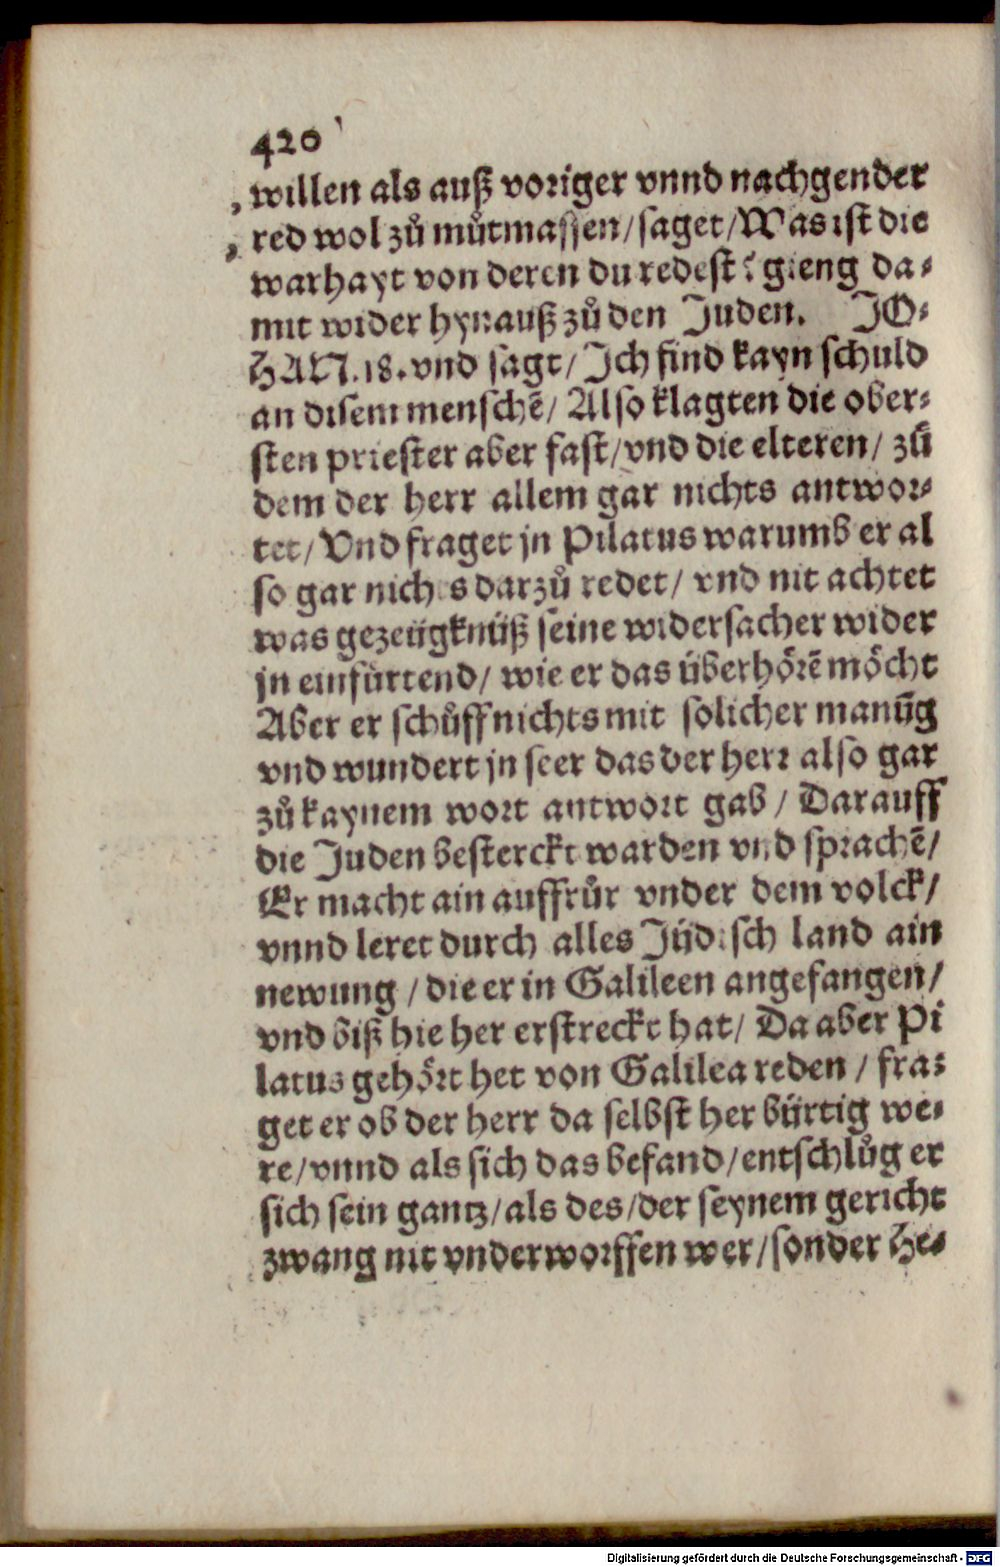 420
willen als auß voriger vnnd nachgender
red wol zů můtmassen/saget/Was ist die
warhayt von deren du redest? gieng da⸗
mit wider hynauß zů den Juden. JO⸗
HAN.18.vnd sagt/Ich find kayn schuld
an disem menschē/Also klagten die ober⸗
sten priester aber fast/vnd die elteren/zů
dem der herr allem gar nichts antwor⸗
tet/Vnd fraget jn Pilatus warumb er al
so gar nichts darzů redet/vnd nit achtet
was gezeügknüß seine widersacher wider
jn einfürtend/wie er das überhörē möcht
Aber er schůff nichts mit solicher manūg
vnd wundert jn seer das der herr also gar
zů kaynem wort antwort gab/Darauff
die Juden besterckt warden vnd sprachē/
Er macht ain auffrůr vnder dem volck/
vnnd leret durch alles Jüdisch land ain
newung/die er in Galileen angefangen/
vnd biß hie her erstreckt hat/Da aber Pi
latus gehört het von Galilea reden/fra⸗
get er ob der herr da selbst her bürtig we⸗
re/vnnd als sich das befand/entschlůg er
sich sein gantz/als des/der seynem gericht
zwang nit vnderworffen wer/sonder He⸗
Digitalisierung gefördert durch die Deutsche Forschungsgemeinschaft - DFG